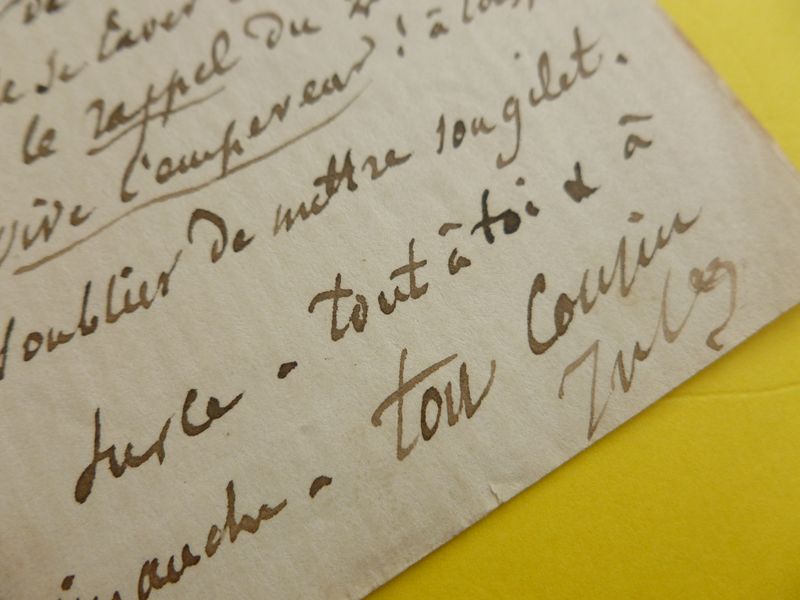 de
se laver
le rappel du
vive l'empereur ! à
d'oublier de mettre son gilet.
surle - tout à toi & à
dimanche - ton Cousin
Jules